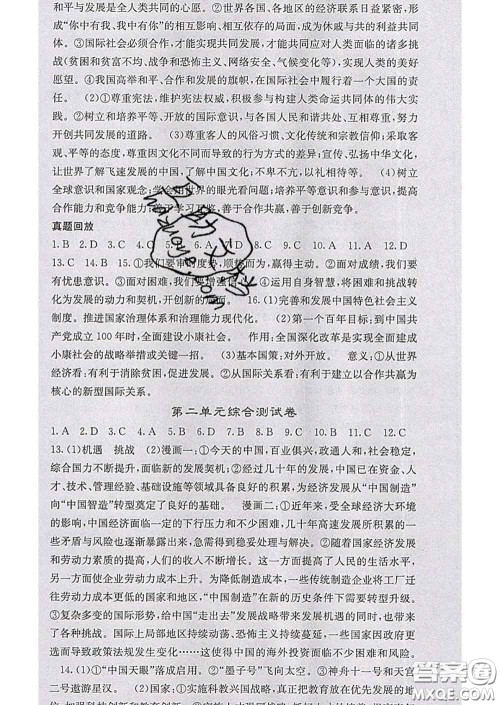 和平与发展是全人类共同的心愿。②世界各国、各地区的经济联系日益紧密,形
成"你中有我、我中有你"的相互影响、相互交织的局面,成为休戚与共的利益共同
体。③国际社会必须合作,才能实现共同发展,才能共同应对人类面临的诸多挑
战(贫困和贫富不均、战争与恐怖主义、网络安全、气候变化等),实现人类的美好
愿望。④我国高举和平、合作和发展的旗帜,在国际社会中履行着一个大国的责
任。 (2)①尊重宪法,维护宪法权威,积极参与构建人类命运共同体的伟大实
践。②树立和培养平等、开放的国际意识,与各国人民和谐共处、相互尊重,努力
开创共同发展的道路。 (3)尊重当事人的风俗习惯、文化传统和宗教信仰;采取客
观、平等的态度,尊重因文化不同而导致的行为方式的差异;宣传、弘扬中华文化,
让世界了解飞速发展的中国,了解中国文化;不卑不亢,以礼相待。 (4)树立
全球意识和国家观念;学会用世界的眼光看问题;培养平等意识和参与意识,提高
合作能力和竞争能力;善于学习互鉴,善于合作共赢,善于创新竞争。
真题回放
1. B 2. D 3. C 4. C 5. C 6. A 7. D 8. C 9. B 10. C 11. A 12. D
13. C 14. B 15. ①我们要审时度势,顺势而为,赢得主动。②面对成绩,我们要
有忧患意识。③面对困难,我们要增强信心。④运用自身智慧,将困难和挑战转
化为发展的动力和契机,开创新的局面。 16. (1)完善和发展中国特色社会主义
制度。推进国家治理体系和治理能力现代化。 (2)第一个百年目标;到中国共
产党成立 100 年时,全面建设小康社会。 作用:全面深化改革是实现全面建成
小康社会的战略举措或关键一招。 (3)基本国策:对外开放。 意义:①从世界
经济看:有利于消除贫困,促进共同发展。②从国际关系看:有利于建立以合作共赢为
核心的新型国际关系。
第二单元综合测试卷
1. A 2. D 3. C 4. A 5. B 6. D 7. C 8. B 9. D 10. B 11. C 12. C
13. (1)机遇 挑战 (2)漫画一:①今天的中国,百业俱兴,政通人和,社会稳定,
综合国力不断提升,面临新的发展契机。②经过几十年的发展,中国已在资金、人
才、技术、基础设施等领域具备良好的积累,为经济发展从"中国制造"
向"中国智造"转型奠定了良好的基础。 漫画二:①近年来,受全球经济大环境
的影响,中国经济面临一定的下行压力和不少困难,几十年高速发展所积累的一
些矛盾与风险也逐渐暴露出来,急需得到妥稳处理与解决。②随着国家经济发展
和劳动力素质的提高,人们的收入水平不断提高。这一方面提高了人民的生活水平,
另一方面使企业劳动力成本上升。为降低制造成本,一些传统制造企业将工厂迁
往劳动力成本更低的国家和地区,"中国制造"在新的历史条件下需要转型升级。
③复杂多变的国际形势,给中国"走出去"发展战略带来发展机遇的同时,也带来
了很大的困难。国际上局部地区持续动荡、恐怖主义持续发酵、一些国家因政府更迭
而导致政策法规发生变化……这使得中国的海外投资面临不少困难和风险。
14. (1)①"中国天眼"落成启用。②"墨子号"飞向太空。③神舟十一号和天宫
二号遨游星汉。 (2)国家:①实施科教兴国战略,真正把教育摆在优先发展的地
MXQE.COM